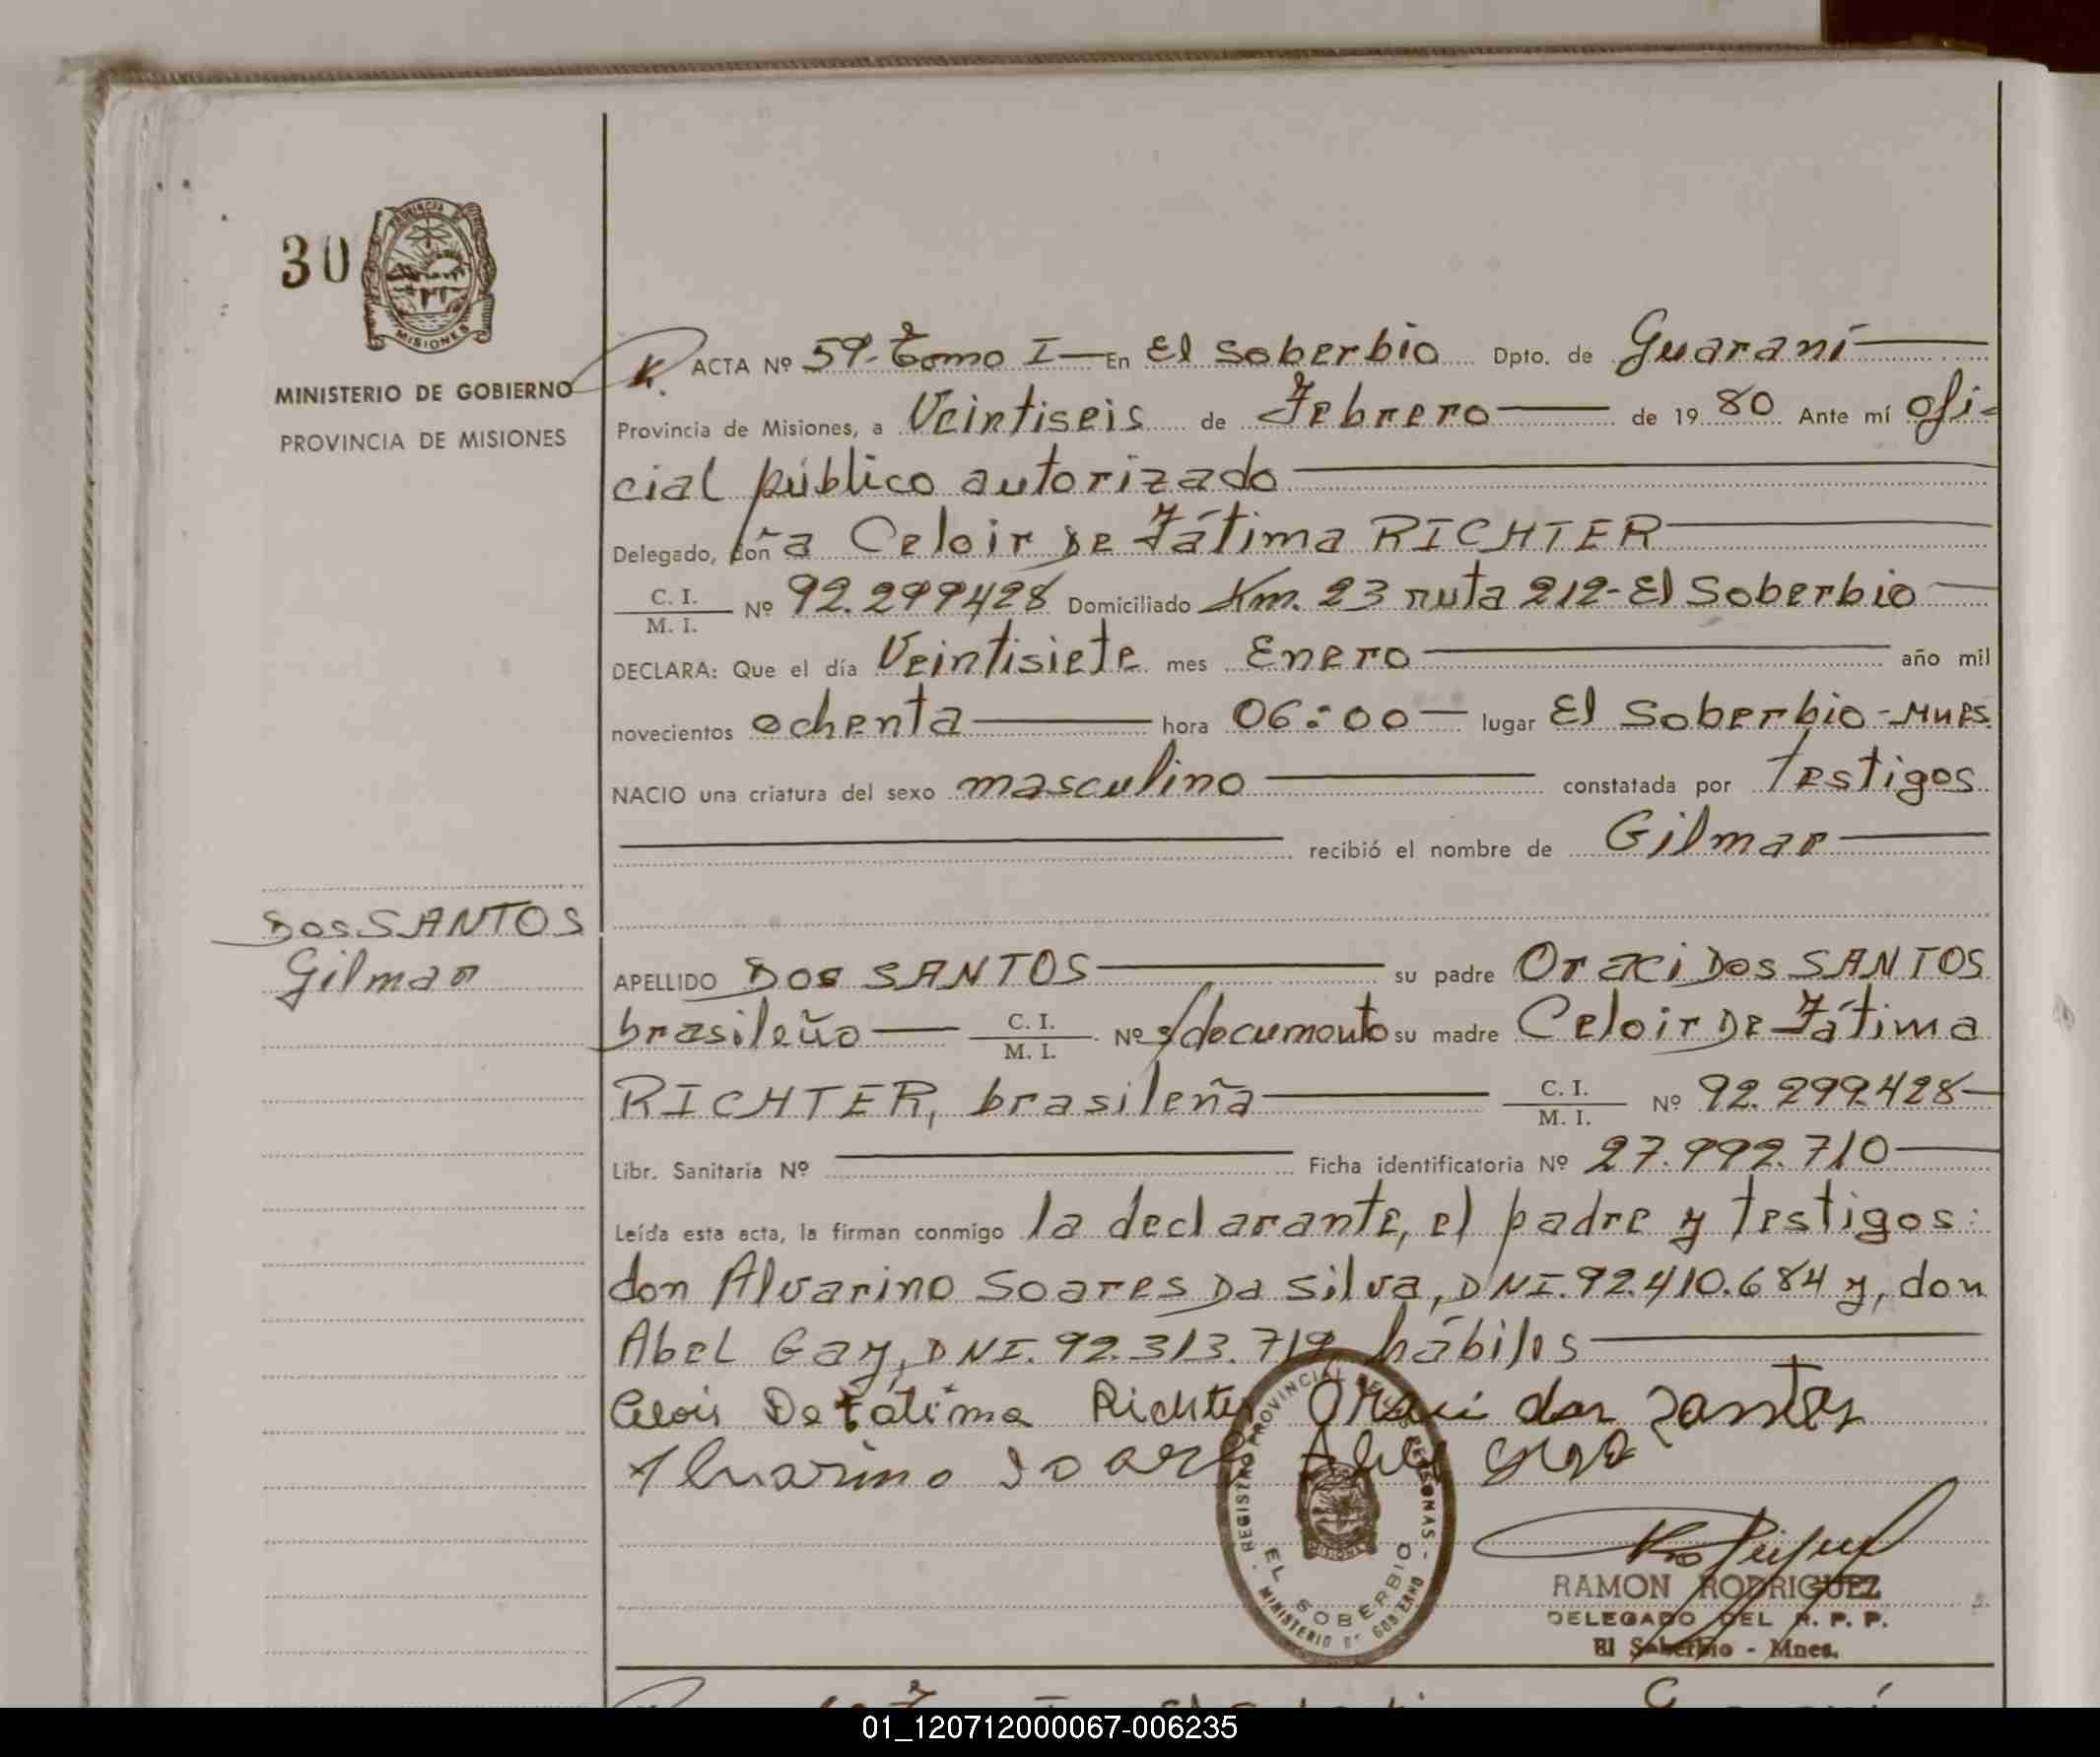 30
PROVINCIA DE
MISIONES
MINISTERIO DE GOBIERNO
PROVINCIA DE MISIONES
ACTA Nº 59-Tomo I — En El Soberbio Dpto. de Guaraní
Provincia de Misiones, a Veintiseis de Febrero de 1980 Ante mí ofi-
cial público autorizado
Delegado, doña Celoir De Fátima RICHTER
C. I. / M. I. Nº 92.299428 Domiciliado Km. 23 ruta 212-El Soberbio
DECLARA: Que el día Veintisiete mes Enero año mil
novecientos ochenta hora 06:00 lugar El Soberbio-Mnes.
NACIO una criatura del sexo masculino constatada por Testigos
recibió el nombre de Gilmar
Dos SANTOS
Gilmar
APELLIDO Dos SANTOS su padre Oraci Dos SANTOS
brasileño C. I. / M. I. Nº s/documento su madre Celoir De Fátima
RICHTER, brasileña C. I. / M. I. Nº 92.299.428
Libr. Sanitaria Nº Ficha identificatoria Nº 27.992.710
Leída esta acta, la firman conmigo la declarante, el padre y testigos:
don Alvarino Soares Da Silva, DNI.92.410.684 y, don
Abel Gay, DNI. 92.313.719, hábiles
Celoir De Fátima Richter Oraci dos Santos
Alvarino Soares Abel
REGISTRO PROVINCIAL DE LAS PERSONAS - MINISTERIO DE GOBIERNO
MISIONES
EL SOBERBIO
RAMON RODRIGUEZ
DELEGADO DEL R. P. P.
El Soberbio - Mnes.
01_120712000067-006235